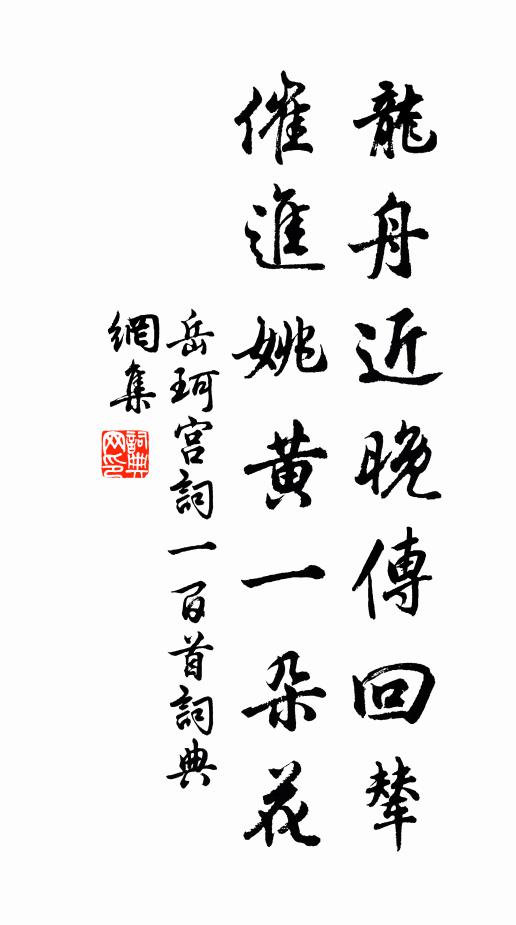 龍舟近晚傳回輦
催進姚黃一朵花
岳珂宮詞一百首詞典
網集
詞典網印